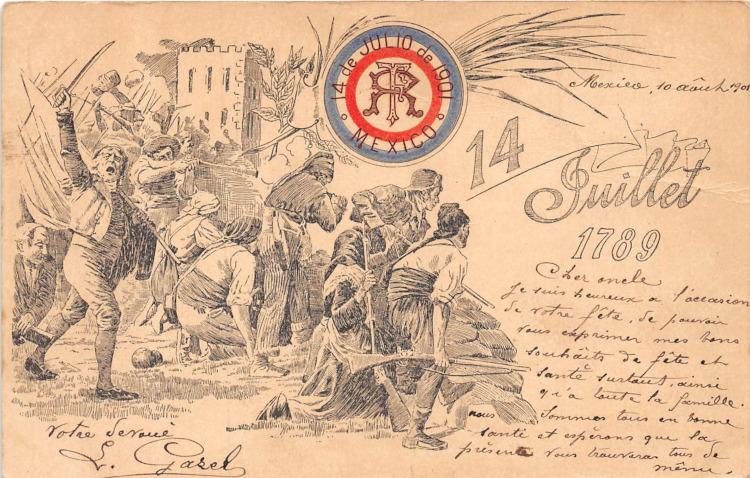 14 de JULIO de 1901
RF
MEXICO
Mexico, 10 août 1901
14
Juillet
1789
Cher oncle
Je suis heureux a l'occasion
de votre fête, de pouvoir
vous exprimer mes bons
souhaits de fête et
santé surtout, ainsi
q'i a toute la famille.
nous sommes tous en bonne
santé et espérons que la
présente vous trouveras tous de
même.
Votre dévoué
L. Gasel